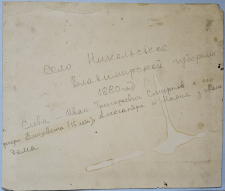 Село Никольское
Владимирской губернии
1880 год
Слева Иван Григорьевич Смирнов и его
Елизавета (15 лет) Александра и
дома